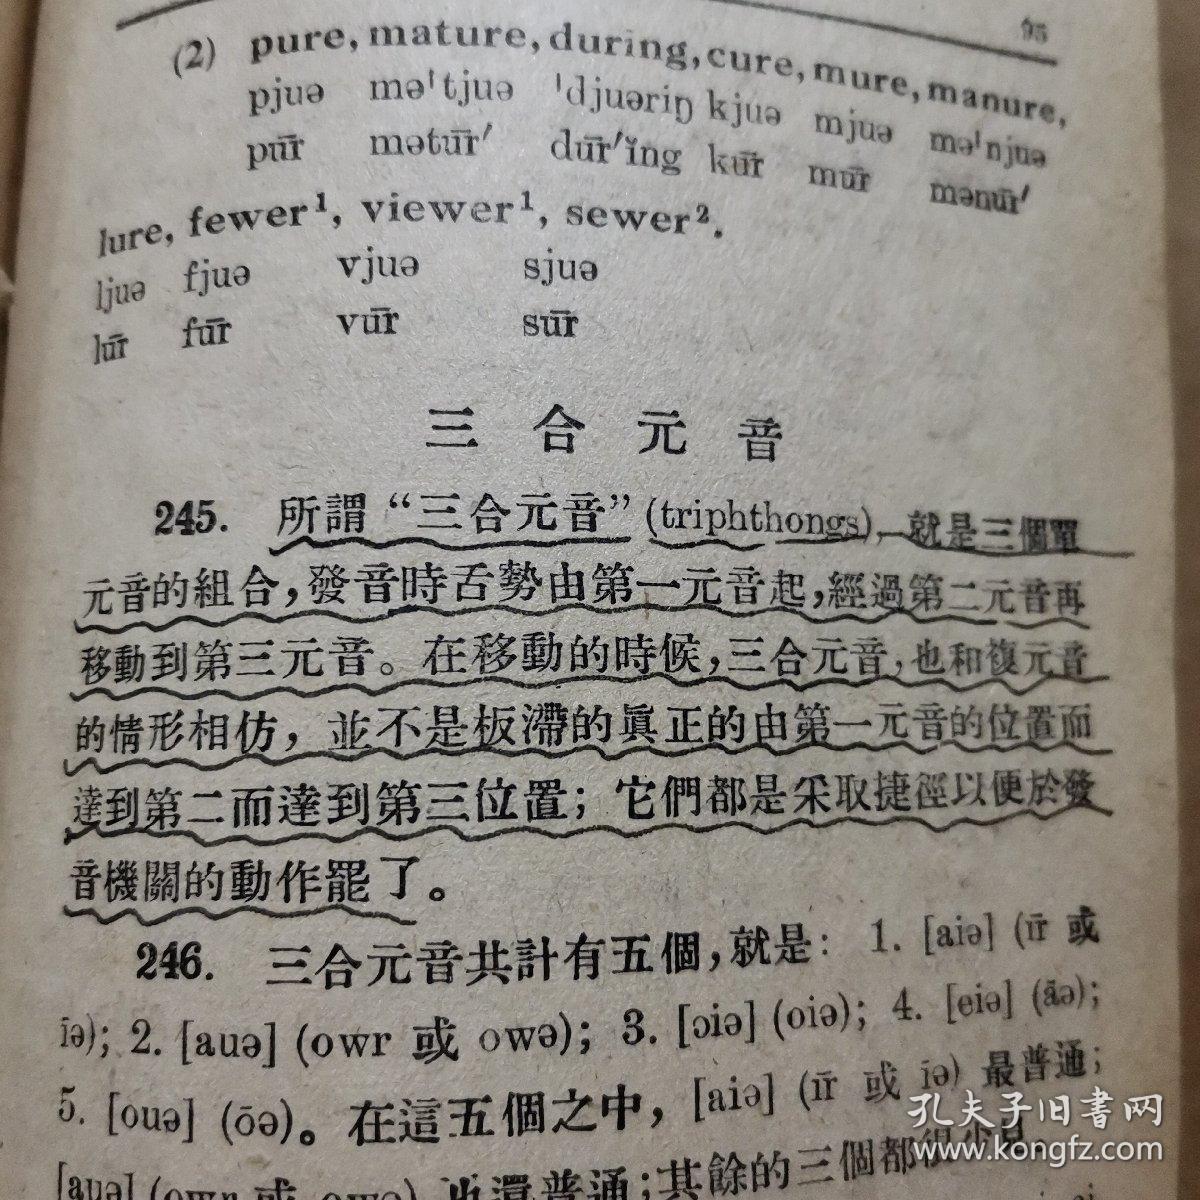 95
(2) pure, mature, during, cure, mure, manure,
pjuə məˈtjuə ˈdjuəriŋ kjuə mjuə məˈnjuə
pūr mətūr′ dūr′ĭng kūr mūr mənūr′
lure, fewer¹, viewer¹, sewer².
ljuə fjuə vjuə sjuə
lūr fūr vūr sūr
三合元音
245. 所謂“三合元音”(triphthongs), 就是三個單
元音的組合,發音時舌勢由第一元音起,經過第二元音再
移動到第三元音。在移動的時候,三合元音,也和復元音
的情形相仿,並不是板滯的眞正的由第一元音的位置而
達到第二而達到第三位置;它們都是采取捷徑以便於發
音機關的動作罷了。
246. 三合元音共計有五個,就是: 1. [aiə] (īr 或
īə); 2. [auə] (owr 或 owə); 3. [ɔiə] (oiə); 4. [eiə] (āə);
5. [ouə] (ōə)。在這五個之中, [aiə] (īr 或 īə) 最普通;
[auə] (owr 或 owə) 也還普通;其餘的三個都很少見。
孔夫子旧書网
www.kongfz.com